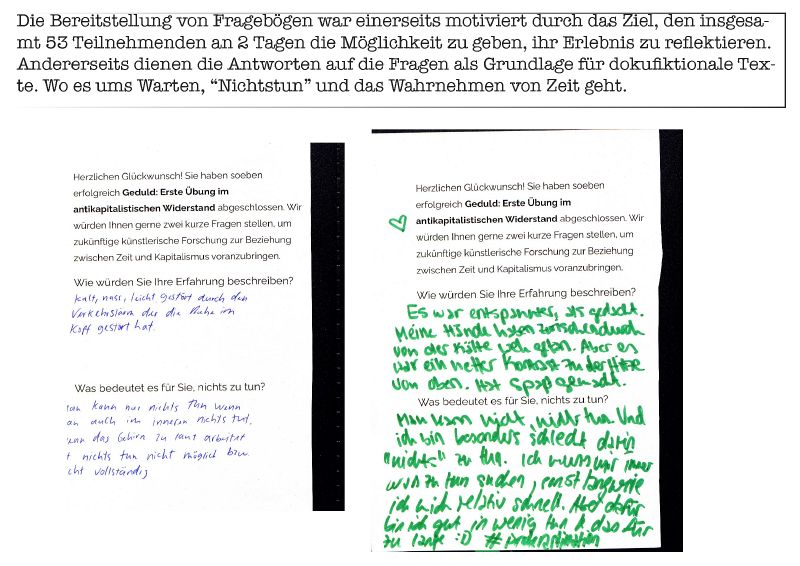 Die Bereitstellung von Fragebögen war einerseits motiviert durch das Ziel, den insgesa-
mt 53 Teilnehmenden an 2 Tagen die Möglichkeit zu geben, ihr Erlebnis zu reflektieren.
Andererseits dienen die Antworten auf die Fragen als Grundlage für dokufiktionale Tex-
te. Wo es ums Warten, “Nichtstun” und das Wahrnehmen von Zeit geht.
Herzlichen Glückwunsch! Sie haben soeben
erfolgreich Geduld: Erste Übung im
antikapitalistischen Widerstand abgeschlossen. Wir
würden Ihnen gerne zwei kurze Fragen stellen, um
zukünftige künstlerische Forschung zur Beziehung
zwischen Zeit und Kapitalismus voranzubringen.
Wie würden Sie Ihre Erfahrung beschreiben?
Kalt, nass, leicht gestört durch den
Verkehrslärm der die Ruhe im
Kopf gestört hat.
Was bedeutet es für Sie, nichts zu tun?
kann nur nichts tun wenn
auch im inneren nichts tut.
das Gehirn zu laut arbeitet
nichts tun nicht möglich bzw.
cht vollständig
Herzlichen Glückwunsch! Sie haben soeben
erfolgreich Geduld: Erste Übung im
antikapitalistischen Widerstand abgeschlossen. Wir
würden Ihnen gerne zwei kurze Fragen stellen, um
zukünftige künstlerische Forschung zur Beziehung
zwischen Zeit und Kapitalismus voranzubringen.
Wie würden Sie Ihre Erfahrung beschreiben?
Es war entspannter, als gedacht.
Meine Hände haben zwischendurch
von der Kälte weh getan. Aber es
war ein netter Kontrast zu der Hitze
von oben. Hat Spaß gemacht.
Was bedeutet es für Sie, nichts zu tun?
Man kann nicht nichts tun. Und
ich bin besonders schlecht darin
"nichts" zu tun. Ich muss mir immer
was zu tun suchen, sonst langweile
ich mich relativ schnell. Aber dafür
bin ich gut in wenig tun & das für
zu lange :D #